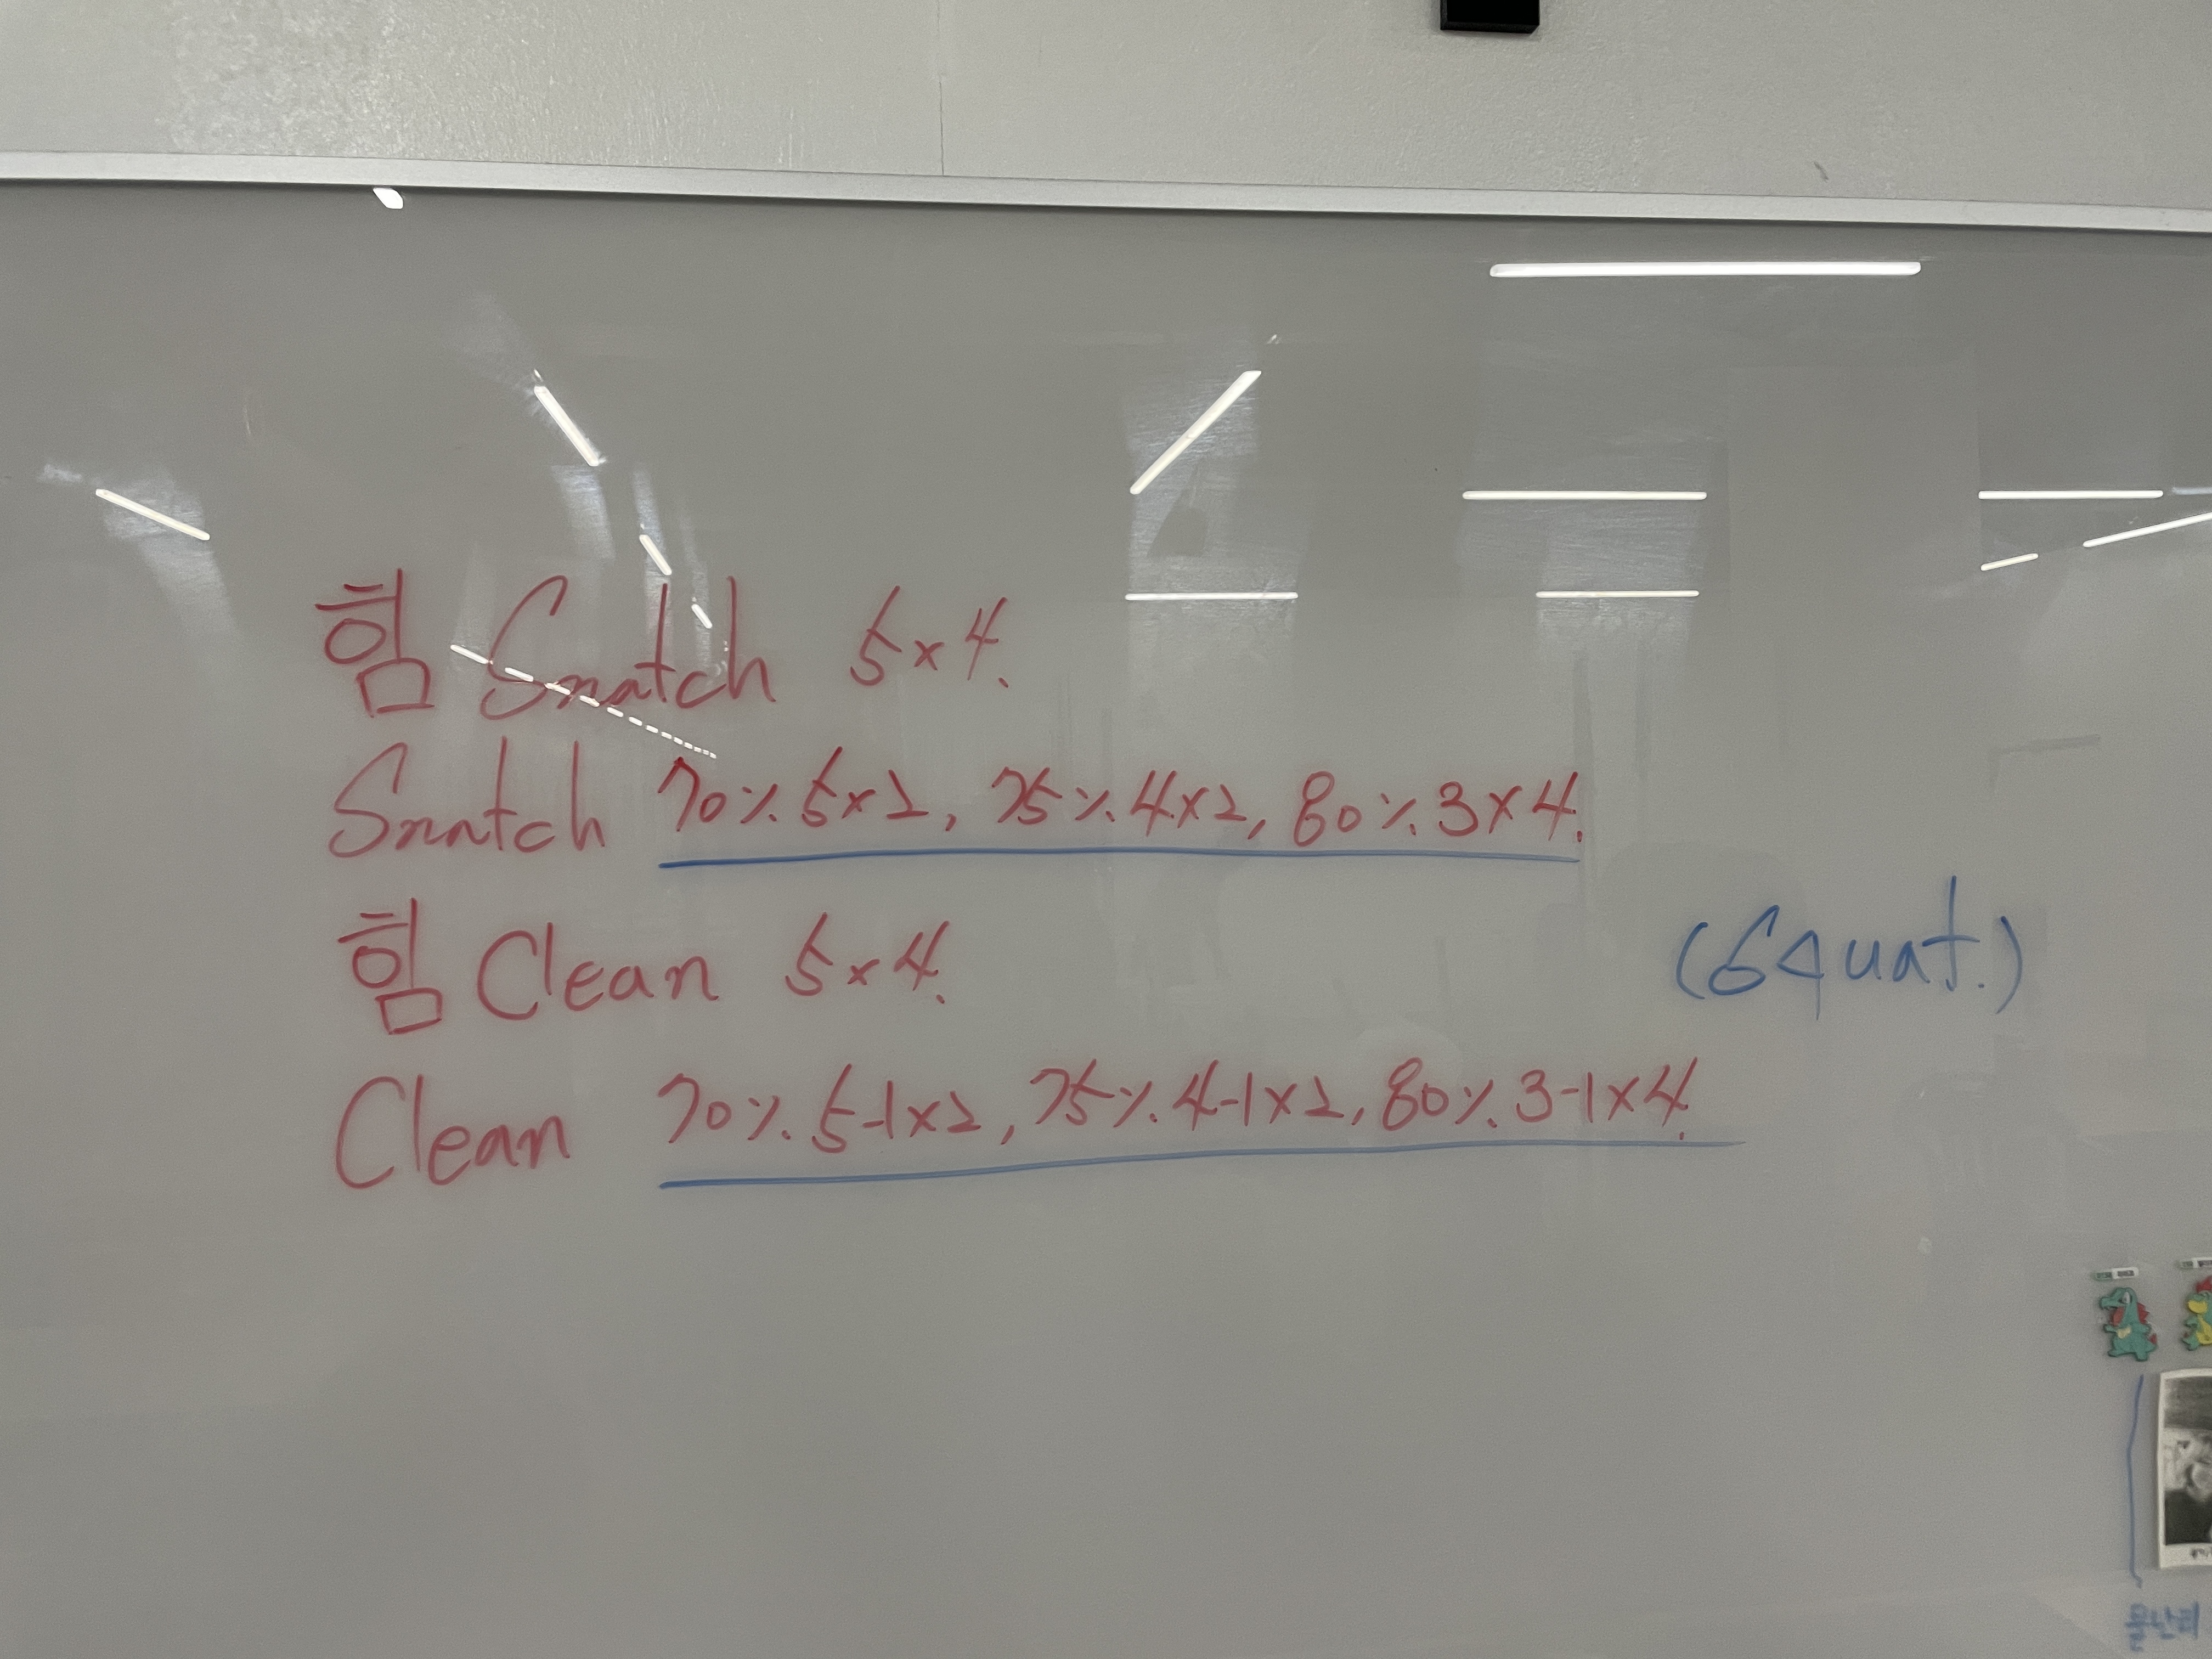 힘 Snatch 5×4.
Snatch 70% 5×2, 75% 4×2, 80% 3×4.
힘 Clean 5×4.
(Squat.)
Clean 70% 5-1×2, 75% 4-1×2, 80% 3-1×4.